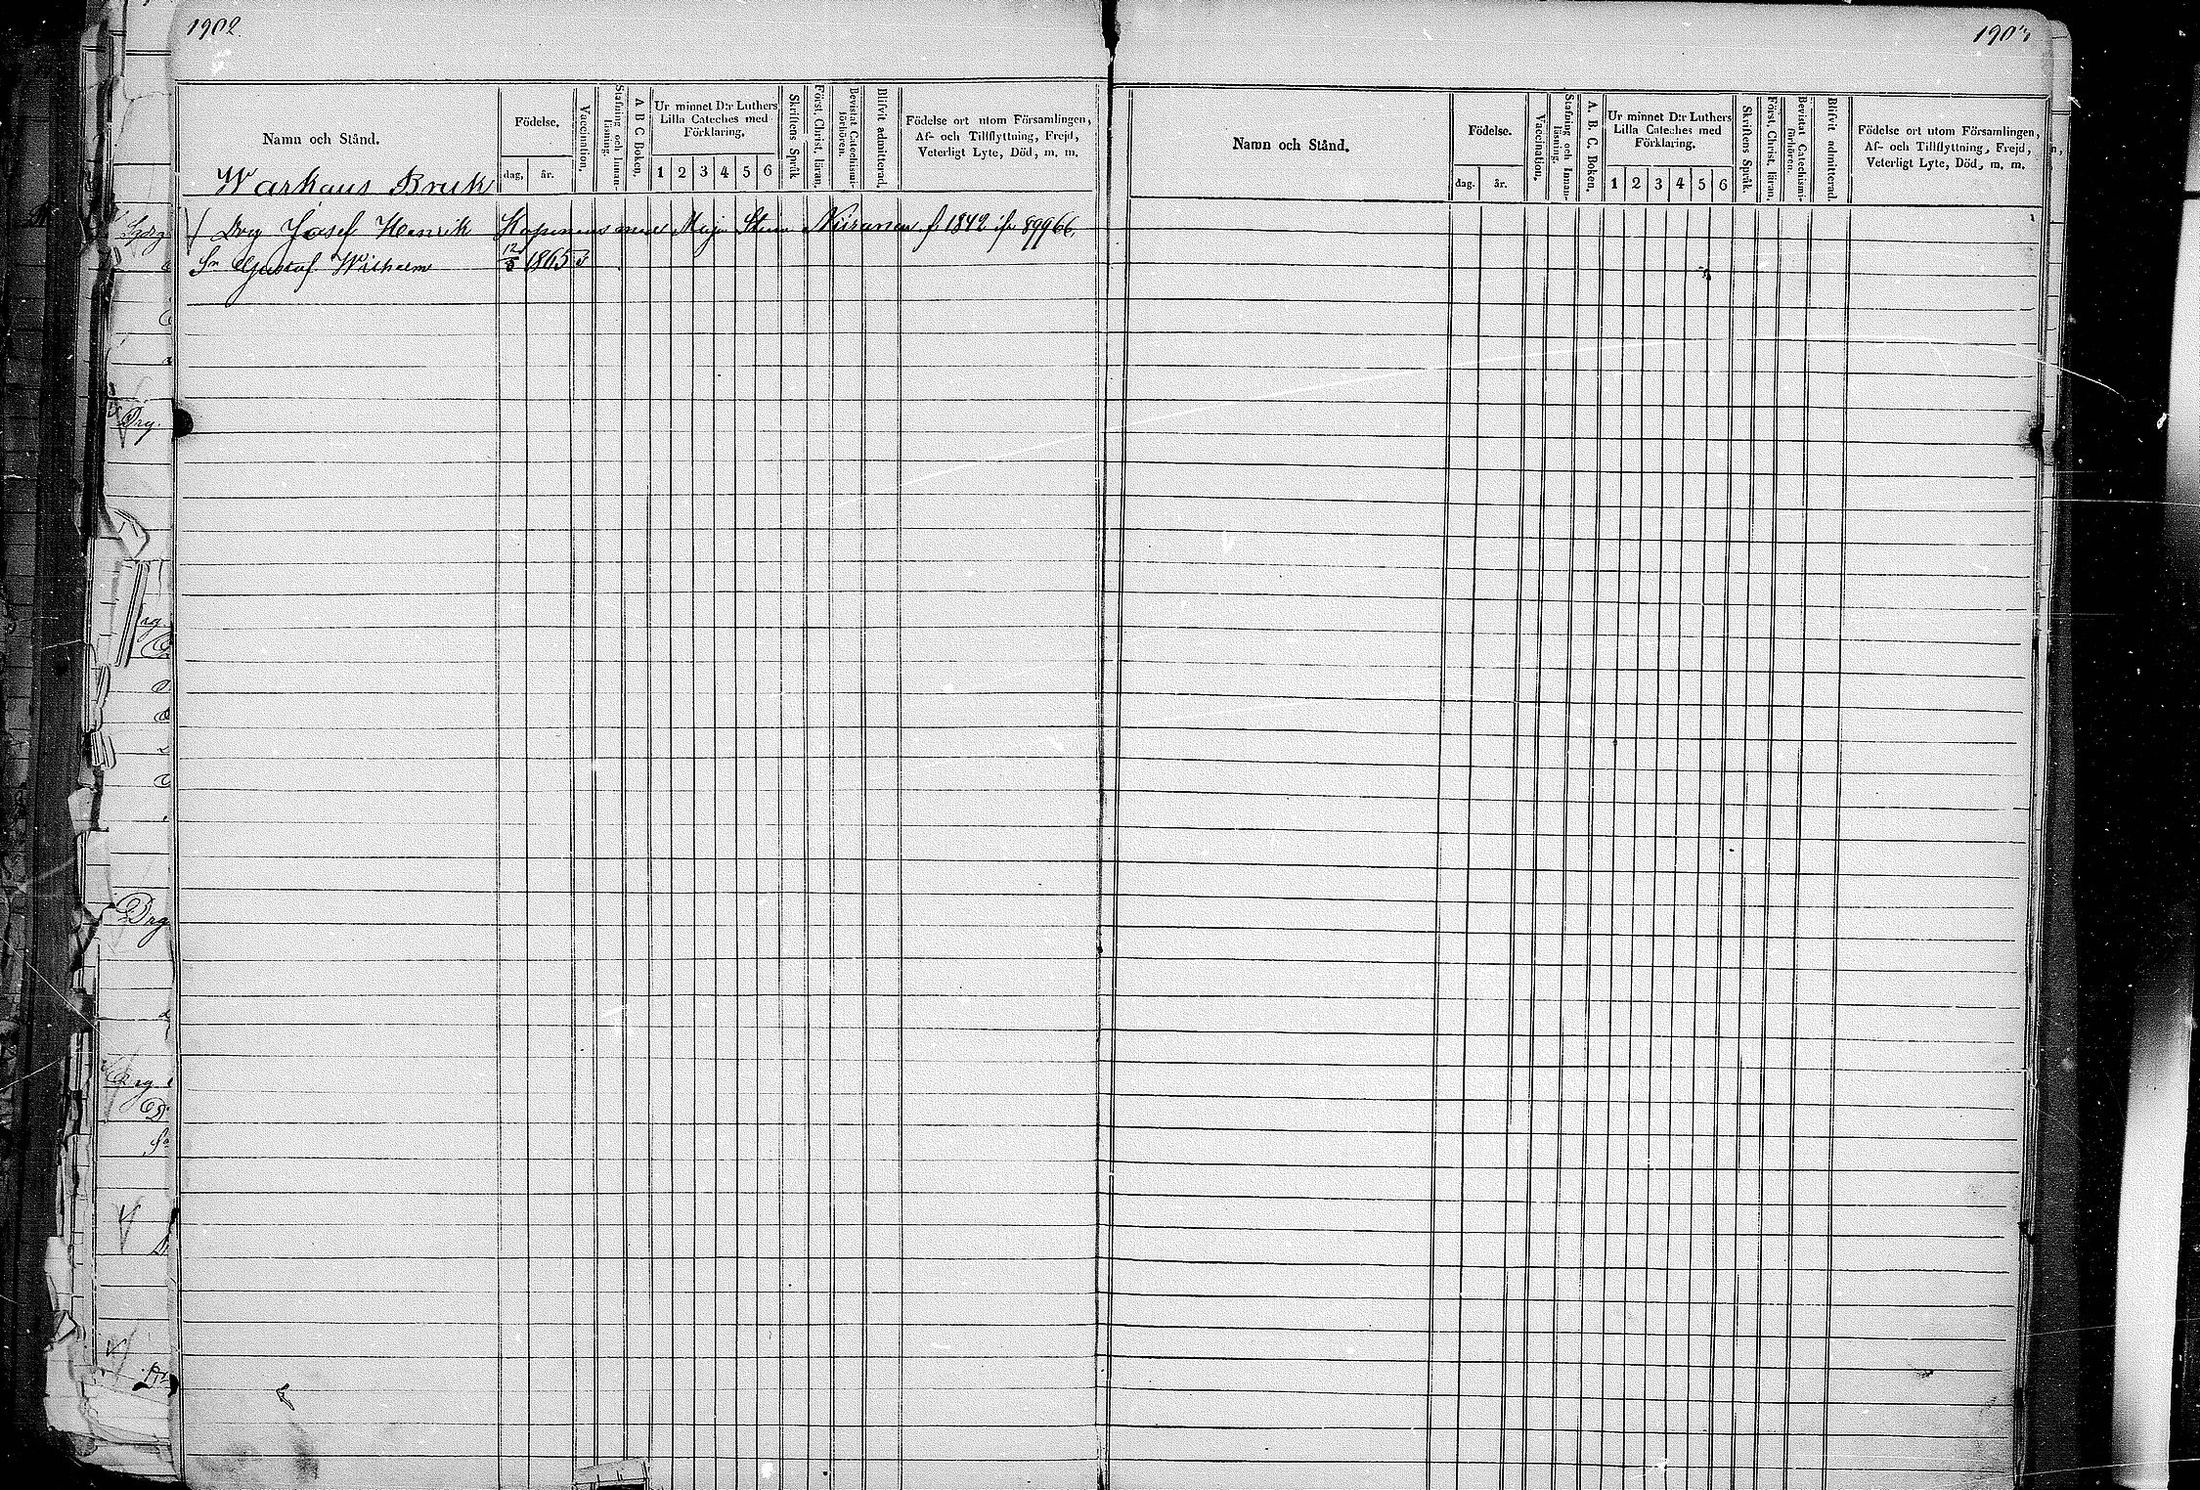 1902.
Namn och Stånd.
Födelse.
dag, år.
Vaccination,
Stafning och Innanläsning.
A B C Boken,
Ur minnet D:r Luthers Lilla Cateches med Förklaring.
1 2 3 4 5 6
Skriftens Språk
Först. Christ. läran,
Bevistat Catechismiförhören.
Blifvit admitterad.
Födelse ort utom Församlingen, Af- och Tillflyttning, Frejd, Veterligt Lyte, Död, m. m.
Warkaus Bruk
Drg Josef Henrik med Stina Niiranen f. 1842
Sn Gustaf Wilhelm 12/3 1865
Drg.
Drg
Drg
190
Namn och Stånd.
Födelse.
dag. år.
Vaccination.
Stafning och Innanläsning.
A. B. C. Boken,
Ur minnet D:r Luthers Lilla Cateches med Förklaring.
1 2 3 4 5 6
Skriftens Språk.
Först. Christ. läran,
Bevistat Catechismiförhören.
Blifvit admitterad.
Födelse ort utom Församlingen, Af- och Tillflyttning, Frejd, Veterligt Lyte, Död, m. m.